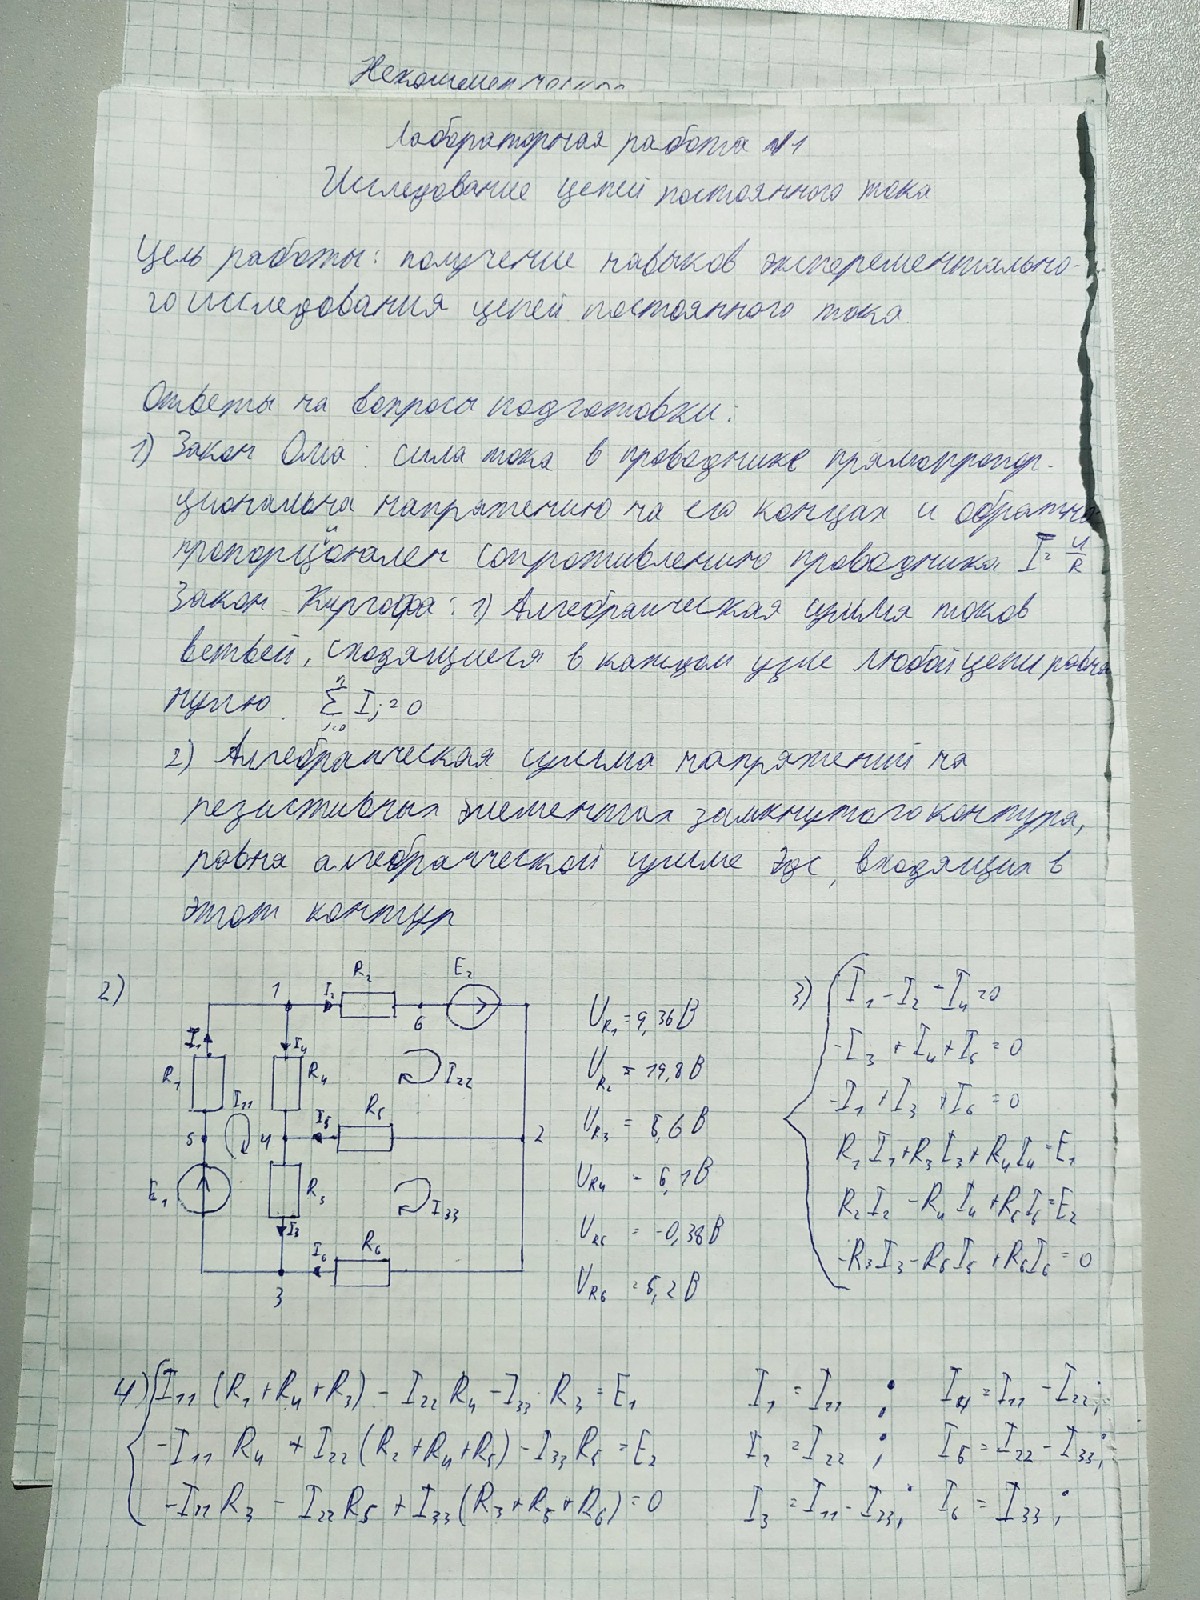 Лабораторная работа №1
Исследование цепей постоянного тока
Цель работы: получение навыков эксперементально-
го исследования цепей постоянного тока
Ответы на вопросы подготовки:
1) Закон Ома: сила тока в проводнике прямопропор-
циональна напряжению на его концах и обратно
пропорционален сопротивлению проводника I = U/R
Закон Киргофа: 1) Алгебраическая сумма токов
ветвей, сходящиеся в каждом узле любой цепи равна
нулю. ∑ I_j = 0
2) Алгебраическая сумма напряжений на
резистивных элементах замкнутого контура,
равна алгебраической сумме эдс, входящих в
этот контур
2)
1 I₂ R₂ 6 E₂
I₁ R₁ I₄ R₄ I₂₂
I₁₁ 5 4 I₅ R₅ 2
E₁ R₃ I₃ I₃₃
3 I₆ R₆
U_R1 = 9,36 В
U_R2 = 19,8 В
U_R3 = 8,6 В
U_R4 = 6,1 В
U_R5 = -0,38 В
U_R6 = 5,2 В
3) I₁ - I₂ - I₄ = 0
-I₃ + I₄ + I₅ = 0
-I₁ + I₃ + I₆ = 0
R₁I₁ + R₃I₃ + R₄I₄ = E₁
R₂I₂ - R₄I₄ + R₅I₅ = E₂
-R₃I₃ - R₅I₅ + R₆I₆ = 0
4) I₁₁ (R₁ + R₄ + R₃) - I₂₂ R₄ - I₃₃ R₃ = E₁ I₁ = I₁₁ ; I₄ = I₁₁ - I₂₂ ;
-I₁₁ R₄ + I₂₂ (R₂ + R₄ + R₅) - I₃₃ R₅ = E₂ I₂ = I₂₂ ; I₅ = I₂₂ - I₃₃ ;
-I₁₁ R₃ - I₂₂ R₅ + I₃₃ (R₃ + R₅ + R₆) = 0 I₃ = I₁₁ - I₃₃ ; I₆ = I₃₃ ;